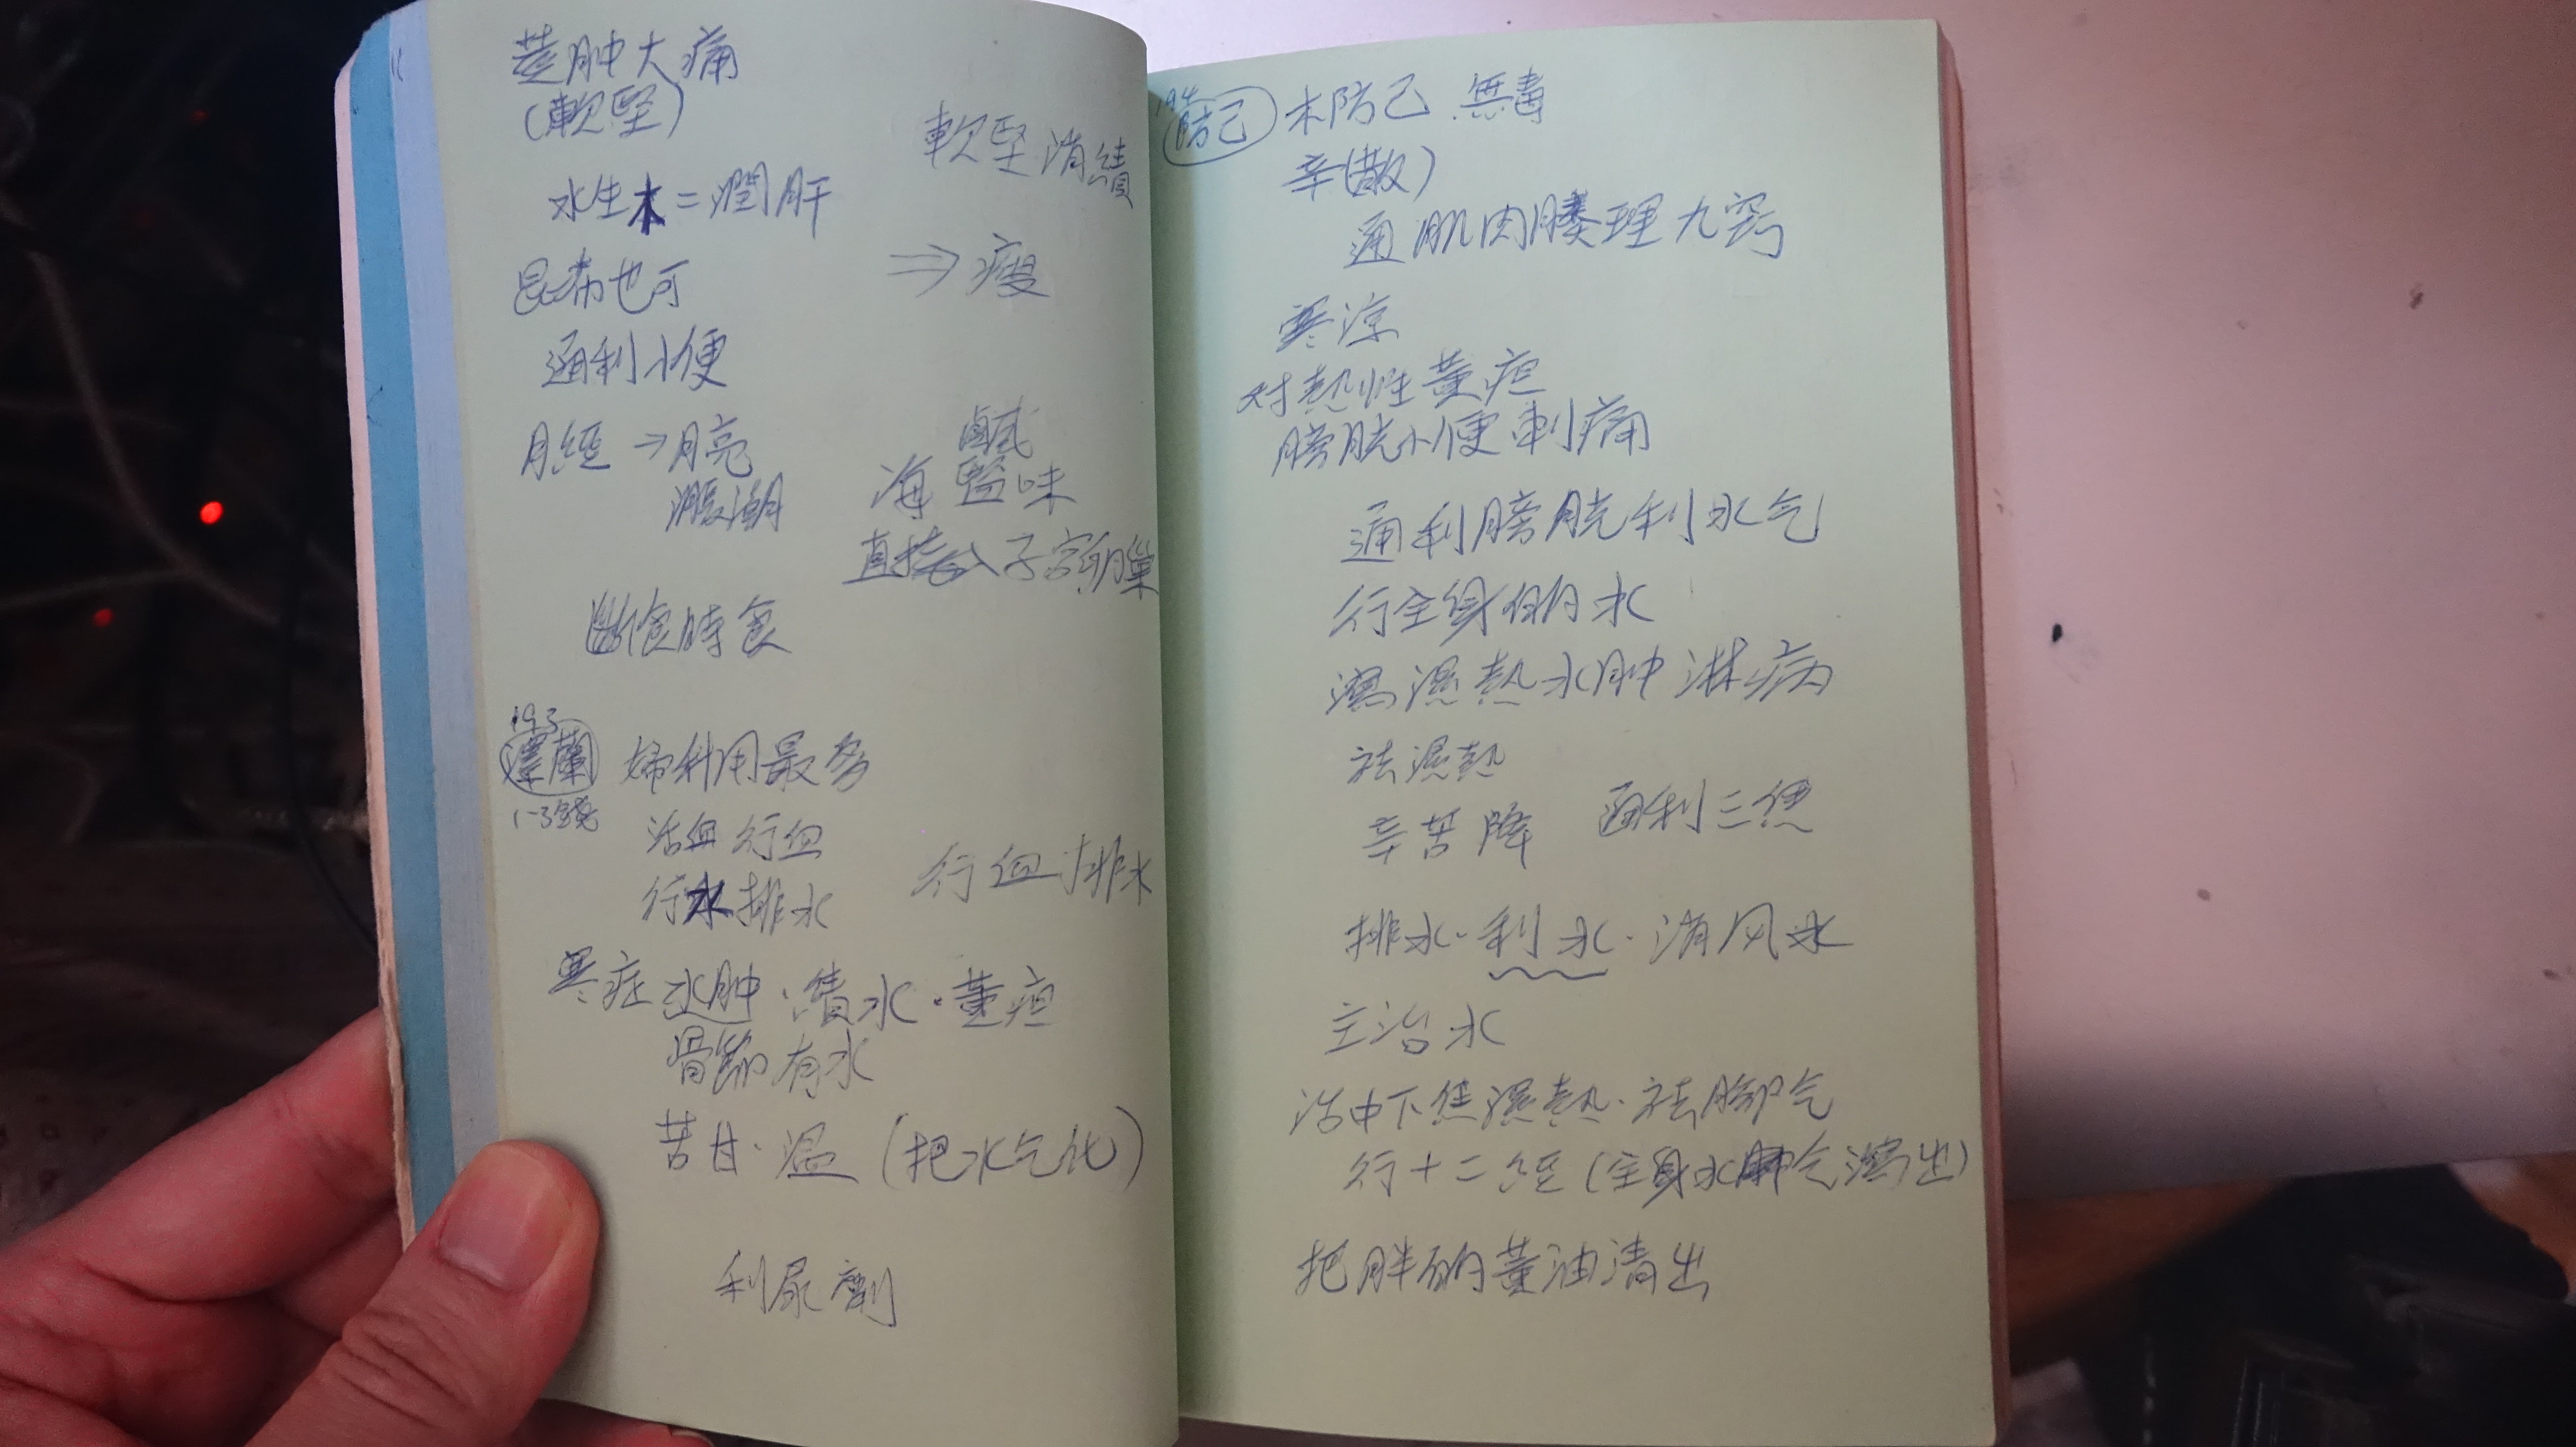 莖肿大痛
(軟堅)
軟堅消積
水生木=潤肝
⇒瘦
昆布也可
通利小便
月經→月亮
漲潮
鹹
海鹽味
直接入子宮卵巢
斷食時食
193
澤蘭 婦科用最多
1-3錢
活血行血
行水排水
行血排水
寒症水肿·潰水·黃疸
骨節有水
苦甘·溫(把水气化)
利尿劑
194
防己 木防己 無毒
辛(散)
通肌肉腠理九窍
寒涼
对熱性黃疸
膀胱小便刺痛
通利膀胱利水气
行全身的水
瀉濕熱水肿淋病
祛濕熱
辛苦降 通利二便
排水·利水·消风水
主治水
治中下焦濕熱·祛腳气
行十二经(全身水肿气瀉出)
把胖的黃油清出